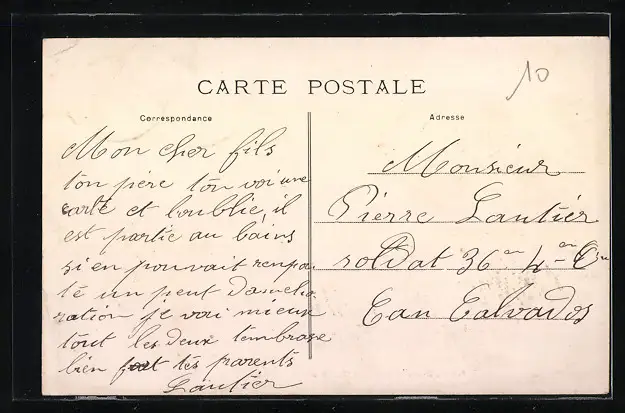 10
CARTE POSTALE
Correspondance
Adresse
Mon cher fils
ton pière ton voi une
carte et loublie, il
est partie au bains
si en pouvait renpo.
té un peut damelio.
ration je voi mieux
tout les deux tembrase
bien fort tés parents
Lautier
Monsieur
Pierre Lautier
soldat 36 en 4 en Cie
Can Calvados